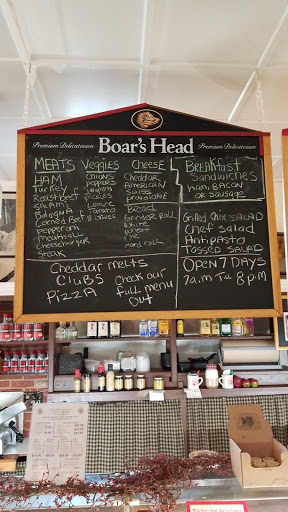 Premium Delicatessen Boar's Head Premium Delicatessen
MEATS
HAM
Turkey
Roast beef
SALAMI
Bologna
Corned Beef
pepperoni
meatball
Cheeseburger
steak
Veggies
onions
peppers
pickles
Tomato
Cheese
Cheddar
American
Swiss
provolone
Bread
White
hard roll
BreakFast
Sandwiches
Ham, BACON
or sausage
Grilled Chix SALAD
Chef Salad
Antipasto
Tossed SALAD
OPEN 7 DAYS
7 a.m Till 8 p.m
Cheddar melts
CLUBS
PIZZA
Check our
full menu
Out